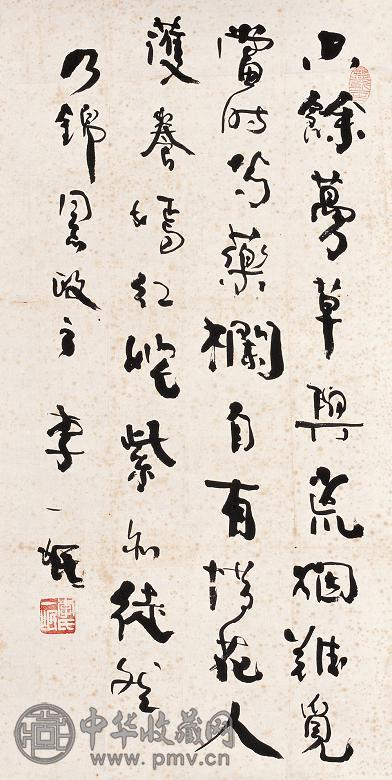 只餘蔓草與荒烟難覓
當時芍藥欄自有惜花人
護養嫣红姹紫徒然
乃錦同志政之 李一氓
中华收藏网
www.pmv.cn